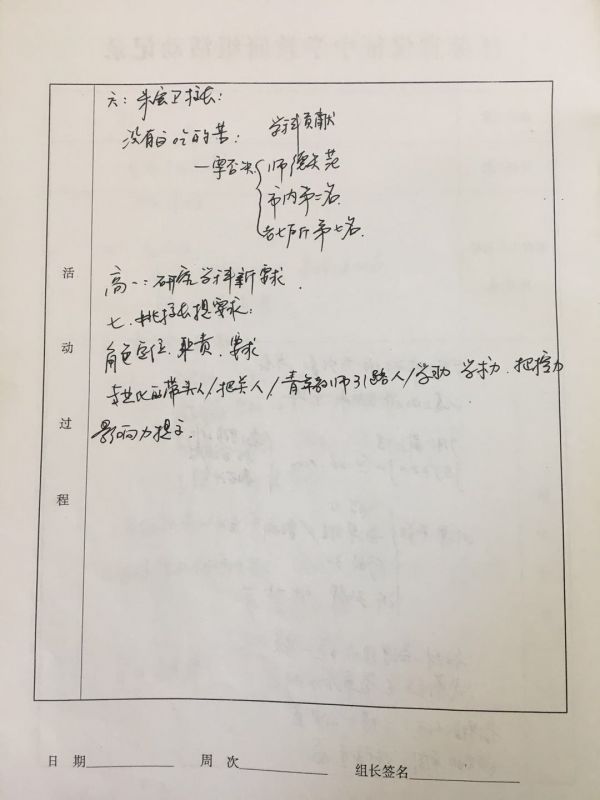 六：朱宏卫校长：
没有白吃的苦：学科贡献
一票否决 师德失范
市内第二名
七所第七名
活动过程
高一：研究学科新要求.
七. 姚校长提要求：
角色定位. 职责. 要求
专业化的带头人/把关人/青年教师引路人/学习力. 把控力
影响力提立.
日 期 周 次 组长签名